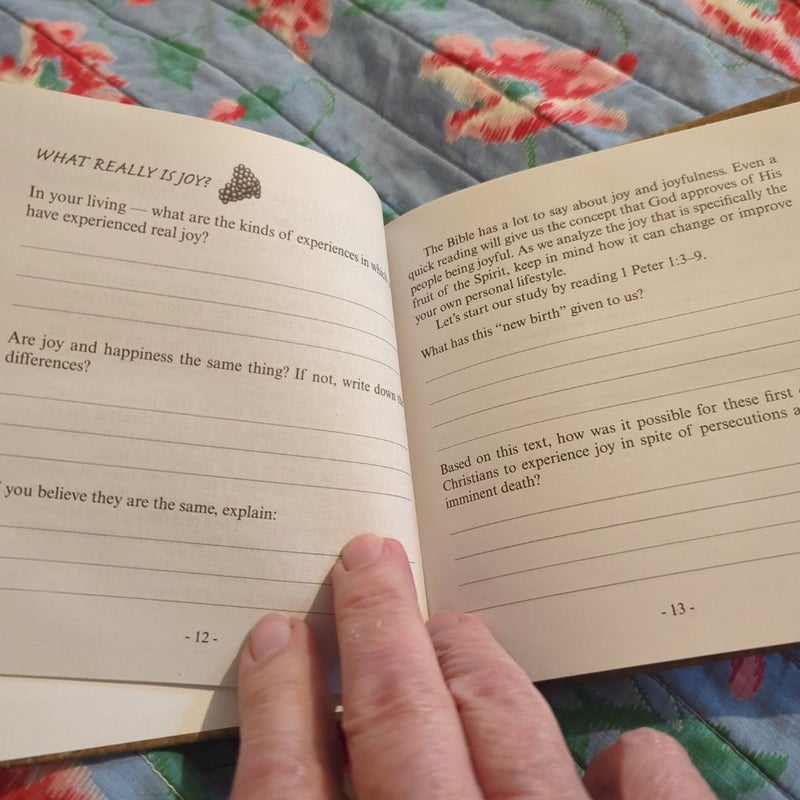 WHAT REALLY IS JOY?
In your living — what are the kinds of experiences in
have experienced real joy?
Are joy and happiness the same thing? If not, write down
differences?
you believe they are the same, explain:
- 12 -
The Bible has a lot to say about joy and joyfulness. Even a
quick reading will give us the concept that God approves of His
people being joyful. As we analyze the joy that is specifically the
fruit of the Spirit, keep in mind how it can change or improve
your own personal lifestyle.
Let's start our study by reading 1 Peter 1:3–9.
What has this “new birth” given to us?
Based on this text, how was it possible for these first
Christians to experience joy in spite of persecutions
imminent death?
- 13 -